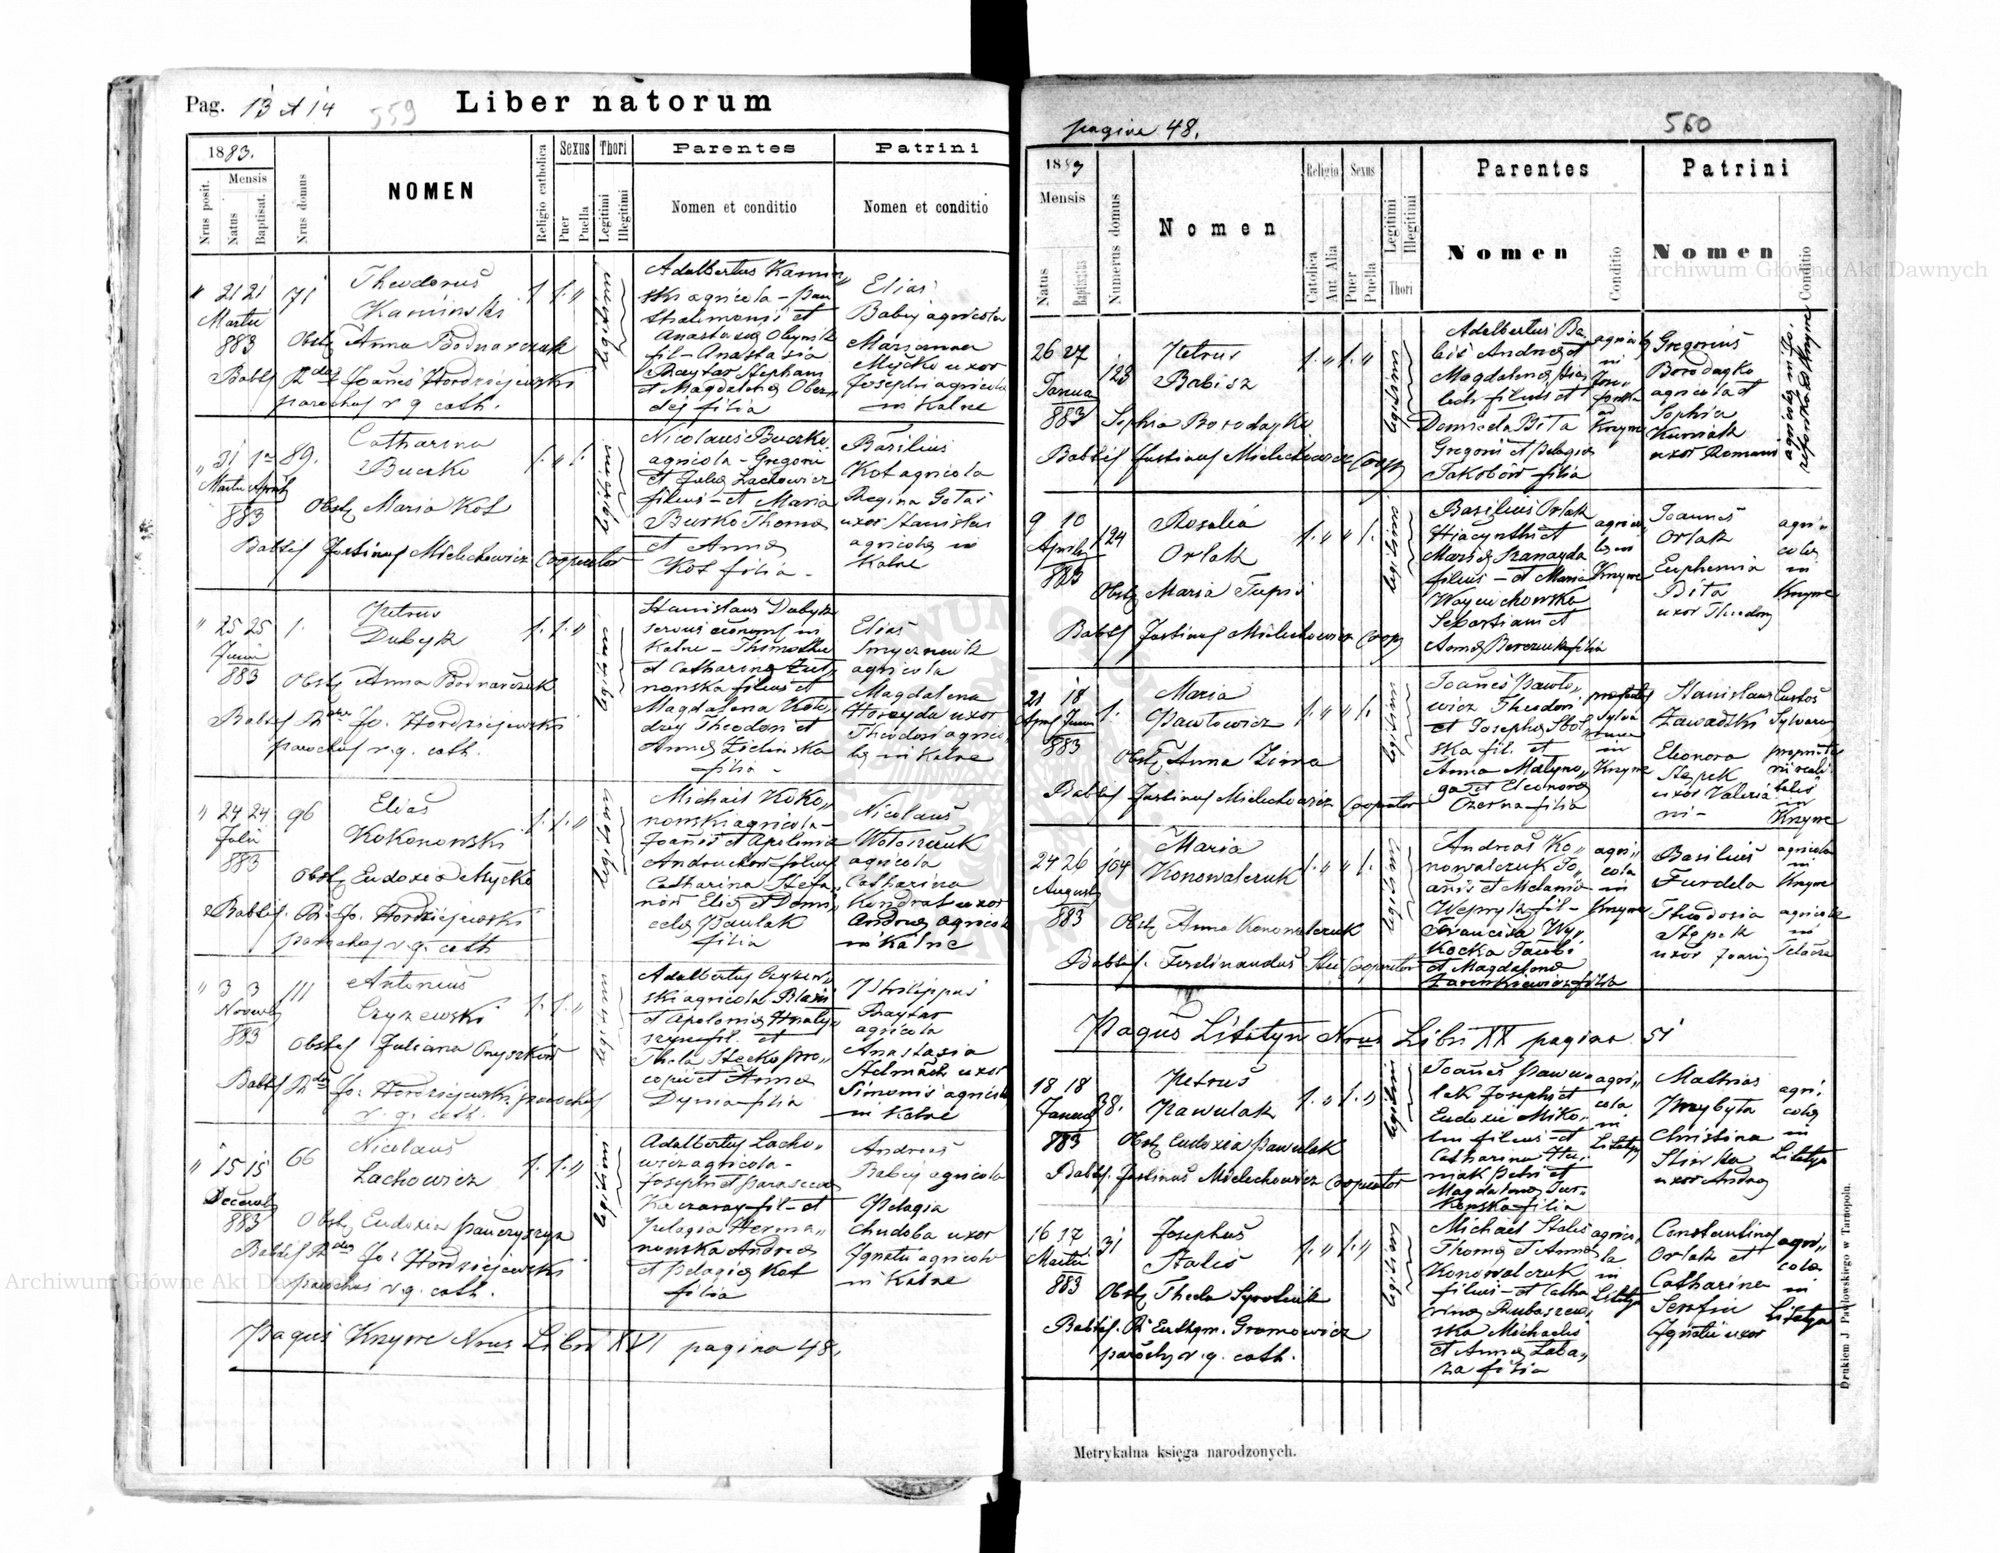 Pag. 13 et 14 559 Liber natorum
1883.
Mensis
Nrus posit.
Natus
Baptisat.
Nrus domus
NOMEN
Religio catholica
Sexus
Puer
Puella
Thori
Legitimi
Illegitimi
Parentes
Nomen et conditio
Patrini
Nomen et conditio
" 21 21 71
Martii
883
Theodorus
Kaminski
Obstx Anna Bodnarczuk
Babts Rdus Joanes Hordziejewski
parochus r. g. cath.
1 1. "
legitimi
Adalbertus Kamin"
ski agricola - Pan"
thalemonis et
Anastasia Oleynik
fil - Anastasia
Baytar Stephani
et Magdalena
filia
Elias
Babij agricola
Marianna
Myćko uxor
Josephi agricola
in Kalne
" 31 1a 89.
Martii Aprilis
883
Catharina
Buczko
Obstx Maria Kot
Babtis Justinus Mielechowicz Cooperator
1. " 1.
legitimi
Nicolaus Buczko
agricola - Gregorii
et Julia Lachowicz
filius - et Maria
Burko Thoma
et Anna
Kot filia -
Basilius
Kot agricola
Regina Gotas
uxor Stanislai
agricola in
Kalne
" 25 25 1.
Junii
883
Petrus
Dubyk
Obstx Anna Bodnarczuk
Babts Rdus Jo. Hordziejewski
parochus r. g. cath.
1. 1. "
legitimi
Stanislaus Dubyk
servus in
Kalne - Thimothei
et Catharina
nowska filius et
Magdalena
Theodori et
Anna Zielinska
filia -
Elias
Smyczniuk
agricola
Magdalena
Horayda uxor
Theodori agrico"
la in Kalne
" 24 24 96
Julii
883
Elias
Kokonowski
Obstx Eudoxia Myćko
Babtis. R. Jo. Hordziejewski
parochus r. g. cath
1. 1. "
legitimi
Michael Koko"
nowski agricola -
Joanis et Apolonia
filius
Catharina Stefa"
nów Elia et Domi"
cela Pawlak
filia
Nicolaus
Wołoszczuk
agricola
Catharina
Kundrat uxor
Andrea agricola
in Kalne
" 3 3 111
Novemb
883
Antonius
Czyzewski
Obstets Juliana Onyszków
Babts Rdus Jo. Hordziejewski parochus
r. g. cath.
1. 1. "
legitimi
Adalbertus Czyzew"
ski agricola Blasii
et Apolonia
fil. et
Thecla Stecko Pro"
copii et Anna
Dynia filia
Philippus
Baytar
agricola
Anastasia
Stelmach uxor
Simonis agricola
in Kalne
" 15 15 66
Decemb
883
Nicolaus
Lachowicz
Obstx Eudoxia Pauczyszyn
Babtis Rdus Jo. Hordziejewski
parochus r. g. cath.
1. 1. "
legitimi
Adalbertus Lacho"
wicz agricola -
Josephi et Parascewa
Kaczaray - fil - et
Pelagia Herma"
nowska Andrea
et Pelagia Kot
filia
Andreas
Babij agricola
Pelagia
Chudoba uxor
Ignatii agricola
in Kalne
Pagus Knywe Nrus Libri XVI pagina 48.
pagina 48. 560
1883
Mensis
Natus
Baptisatus
Numerus domus
Nomen
Religio
Catholica
Aut. Alia
Sexus
Puer
Puella
Legitimi
Illegitimi
Thori
Parentes
Nomen
Conditio
Patrini
Nomen
Conditio
26 27 123
Januar
883
Petrus
Babisz
Sophia Borodayko
Babtis Justinus Mielechowicz Coop
1. " 1. "
legitimi
Adalbertus Ba"
bis Andrea et
Magdalena
filius et
Daniela Bita
Gregorii et Pelagia
Jakobów filia
Gregorius
Borodayko
agricola et
Sophia
Kuniak
uxor Romani
9 10 124
Aprilis
883
Rosalia
Orlak
Obstx Maria Tupis
Babts Justinus Mielechowicz Coop
1. " " 1.
legitimi
Basilius Orlak
Hiacynthi et
Maria Panayda
filius - et Maria
Woyciechowska
Sebastiani et
Anna Berezuk filia
agrico"
la in
Knywe
Joannes
Orlak
Euphemia
Bita
uxor Theodory
agri"
cola
in
Knywe
21 18 1.
April Junii
883
Maria
Pawłowicz
Obstx Anna Zima
Babtis Justinus Mielechowicz Cooperator
1. " " 1.
legitimi
Joanes Pawło"
wicz Theodori
et Josepha
ska fil. et
Anna Malyno"
ga et Eleonora
Czerna filia
in
Knywe
Stanislaus
Zawadski
Eleonora
Stepek
uxor Valeria"
ni -
Custos
Sylvarum
in
Knywe
24 26 104
Augusti
883
Maria
Konowalczuk
Obstx Anna Konowalczuk
Babtis. Ferdinandus Cooperator
1. " " 1.
legitimi
Andreas Ko"
nowalczuk Jo"
anis et Melania
Wepryk fil -
Francisca Wy"
socka Jacobi
et Magdalena
Zarenkiewicz filia
agri"
cola
in
Knywe
Basilius
Furdela
Theodosia
Stepek
uxor Joanis
agricola
in
Knywe
agricola
in
Pagus Litatyn Nrus Libri XX pagina 51
18 18 38.
Januar
883
Petrus
Pawulak
Obstx Eudoxia Pawulak
Babtis. Justinus Mielechowicz Cooperator
1. " 1. "
legitimi
Joanes Pawu"
lak Josephi et
Eudoxie Miko"
filius - et
Catharina Hu"
niak Petri et
Magdalena Tur"
kowska filia
agri"
cola
in
Litatyn
Mathias
Przybyła
Christina
uxor Andrea
agri"
cola
in
Litatyn
16 17 31
Martii
883
Josephus
Stalis
Obstx Thecla Syrotiuk
Babtis. R. Euthym. Gromowicz
parochus r. g. cath.
1. " 1. "
legitimi
Michael Stalis
Thoma et Anna
Konowalczuk
filius - et Catha
rina Rubaszew"
ska Michaelis
et Anna Zaba"
za filia
agrico"
la
in
Litatyn
Constantinus
Orlak et
Catharina
Serafin
Ignatii uxor
agri"
cola
in
Litatyn
Drukiem J. Pawłowskiego w Tarnopolu.
Metrykalna księga narodzonych.
Archiwum Główne Akt Dawnych
Archiwum Główne Akt Dawnych